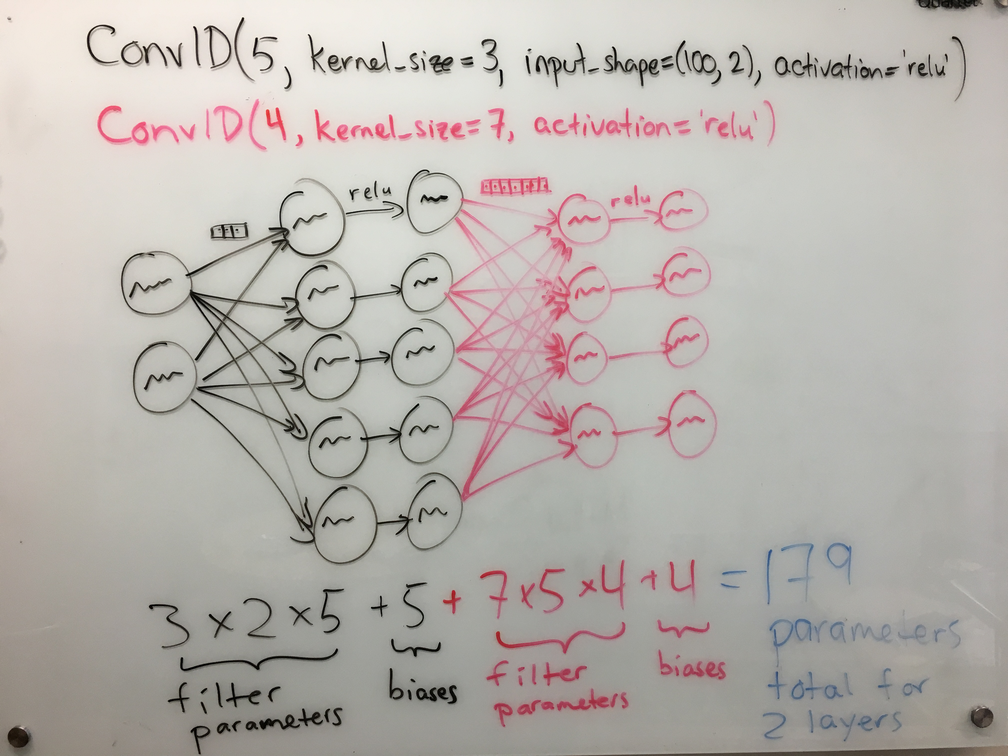 Conv1D(5, kernel_size=3, input_shape=(100,2), activation='relu')
Conv1D(4, kernel_size=7, activation='relu')
relu
relu
3×2×5 +5 + 7×5×4 +4 = 179
filter parameters
biases
filter parameters
biases
parameters
total for
2 layers